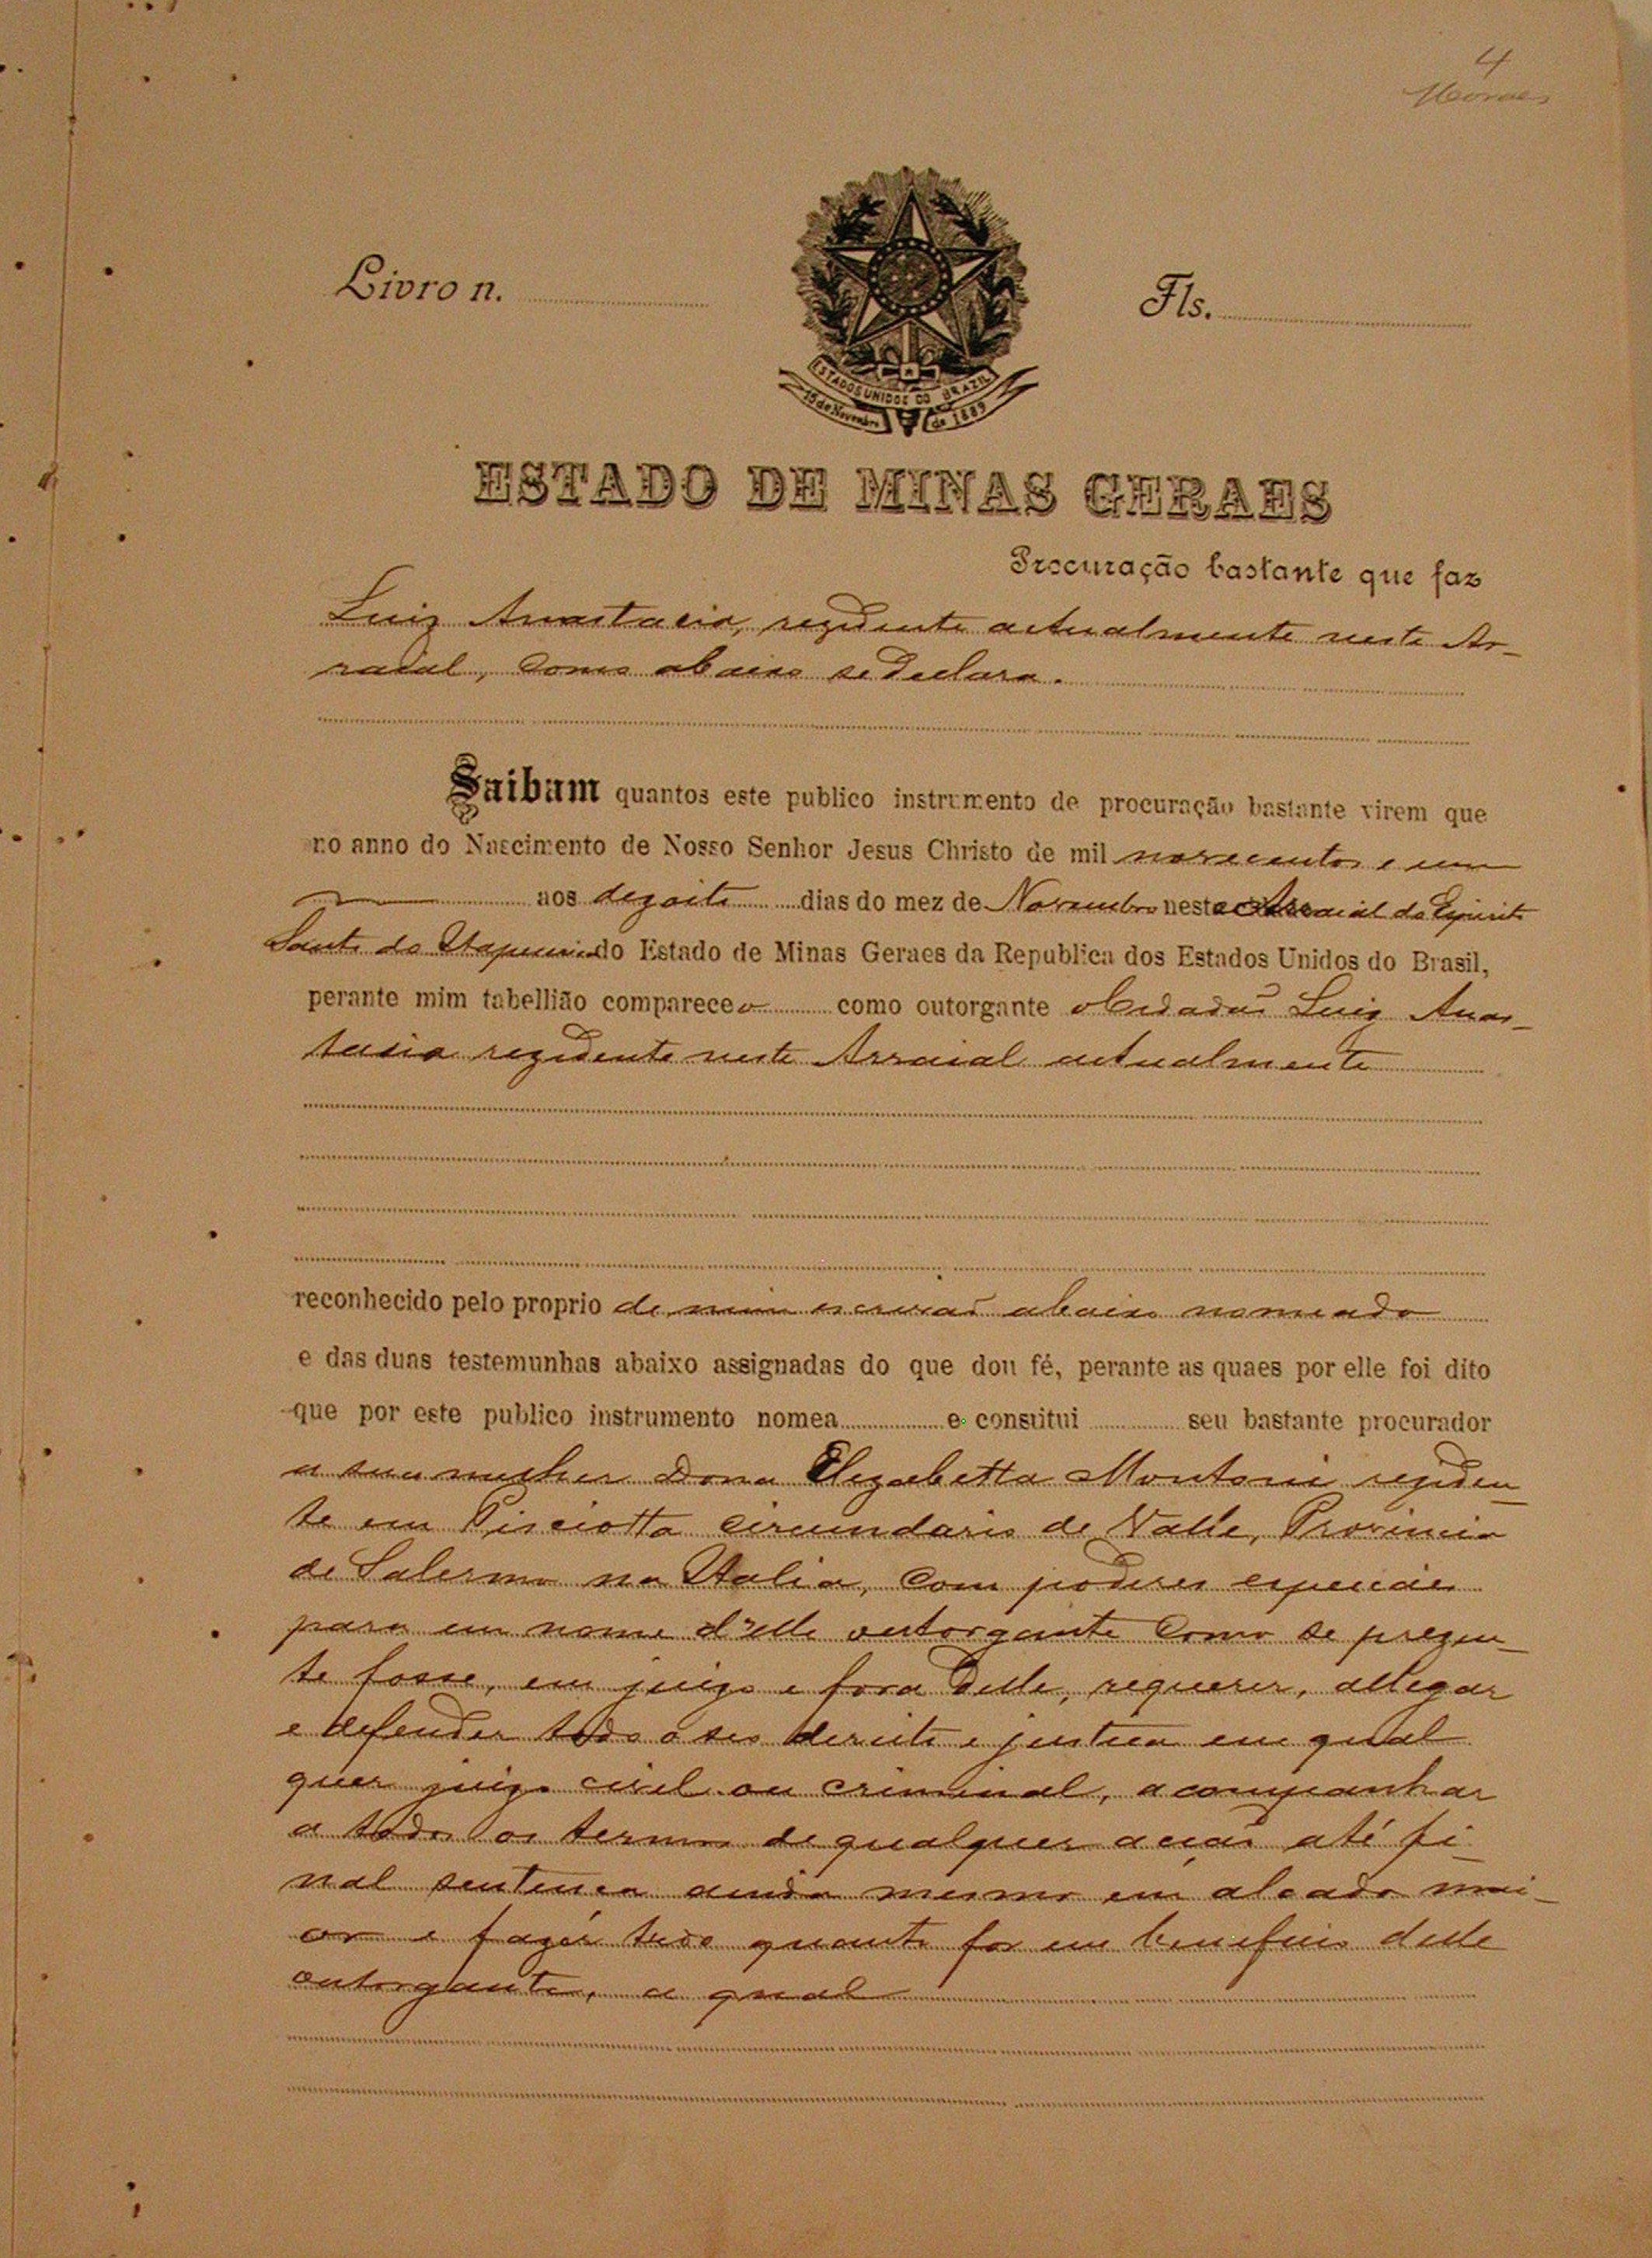 4
Moraes
Livro n.
Fls.
ESTADOS UNIDOS DO BRAZIL
15 de Novembro de 1889
ESTADO DE MINAS GERAES
Procuração bastante que faz
Luiz Anastacio, rezidente actualmente neste Ar-
raial, como abaixo se declara.
Saibam quantos este publico instrumento de procuração bastante virem que
no anno do Nascimento de Nosso Senhor Jesus Christo de mil novecentos e um
aos dezoito dias do mez de Novembro neste Arraial do Espirito
Santo do do Estado de Minas Geraes da Republica dos Estados Unidos do Brasil,
perante mim tabellião compareceo como outorgante o Cidadão Luiz Anas-
tacio rezidente neste Arraial actualmente
reconhecido pelo proprio de mim escrivão abaixo nomeado
e das duas testemunhas abaixo assignadas do que dou fé, perante as quaes por elle foi dito
que por este publico instrumento nomea e constitui seu bastante procurador
a sua mulher Dona Elezabetta Montoni reziden
te em Pisciotta circundario de Valle, Provincia
de Salerno na Italia, com poderes especiaes
para em nome d'elle outorgante como se prezen-
te fosse, em juizo e fora delle, requerer, allegar
e defender todo o seo direito e justica em qual
quer juizo civel ou criminal, acompanhar
a todos os termos de qualquer acção até fi
nal sentenca ainda mesmo em alcada mai-
or e fazer tudo quanto for em beneficio delle
outorgante, a qual